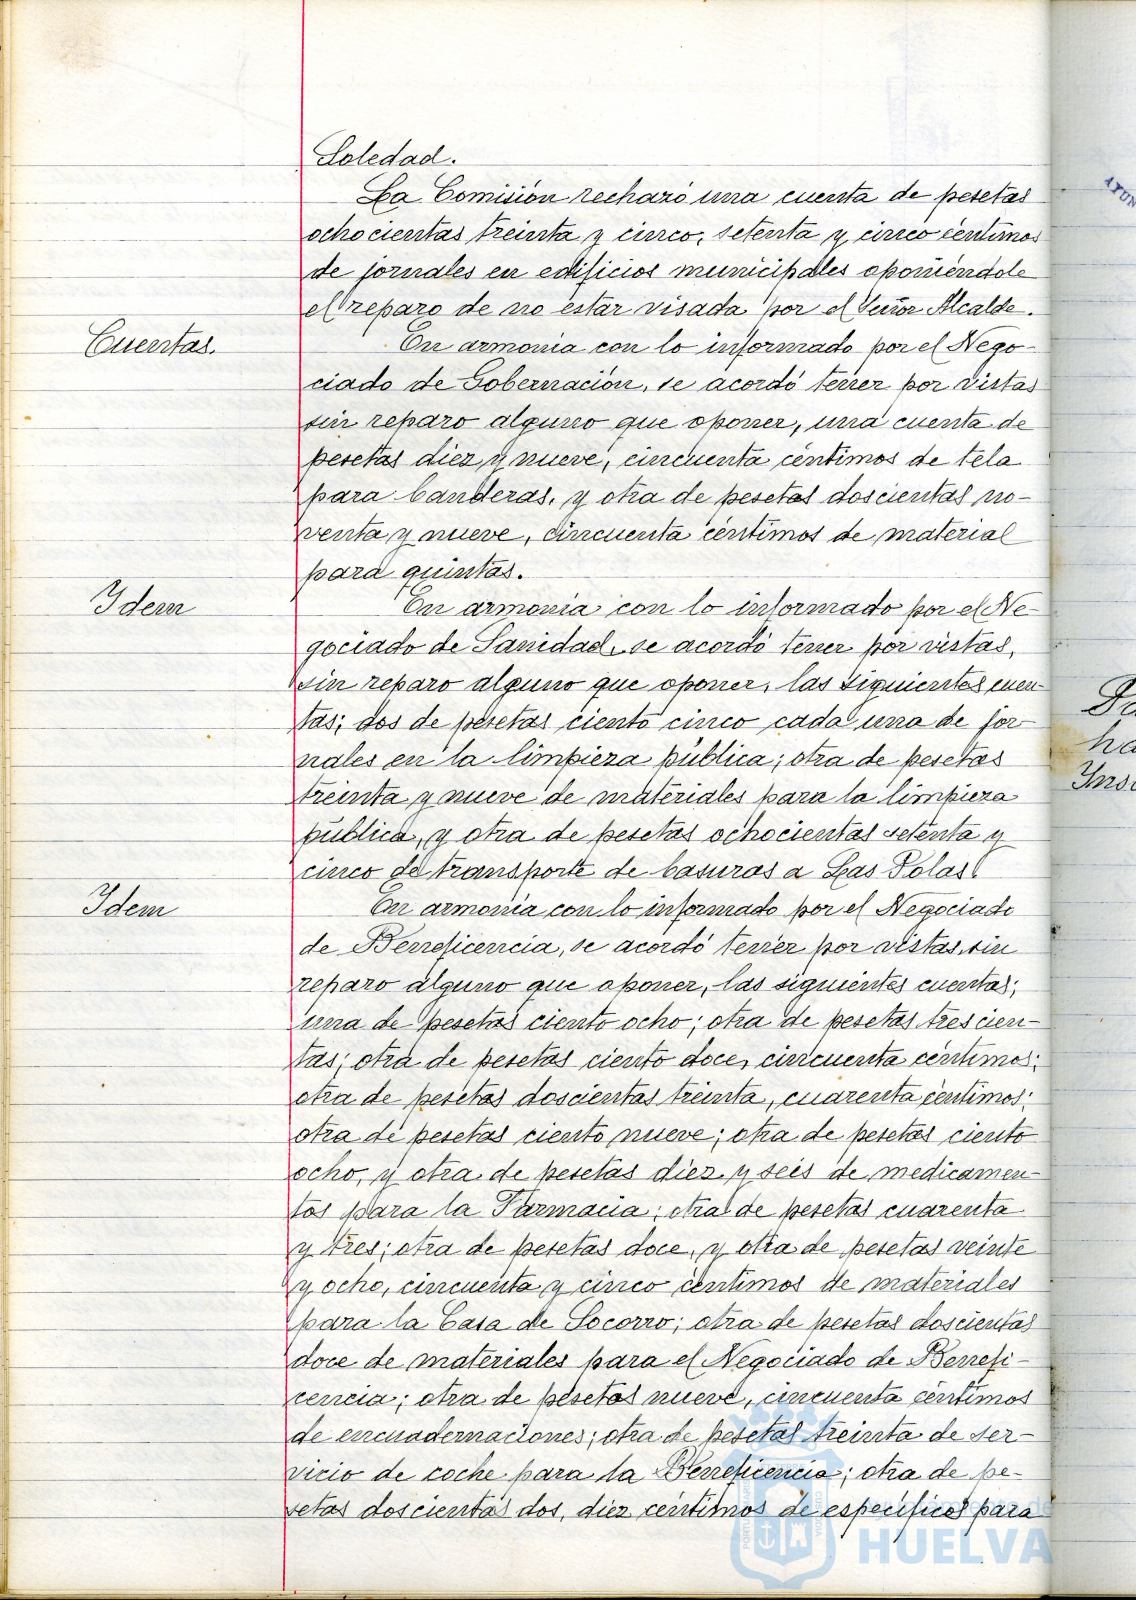 Soledad.
La Comisión rechazó una cuenta de pesetas
ochocientas treinta y cinco, setenta y cinco céntimos
de jornales en edificios municipales oponiéndole
el reparo de no estar visada por el Señor Alcalde.
Cuentas.
En armonia con lo informado por el Nego-
ciado de Gobernación, se acordó tener por vistas
sin reparo alguno que oponer, una cuenta de
pesetas diez y nueve, cincuenta céntimos de tela
para banderas, y otra de pesetas doscientas no-
venta y nueve, cincuenta céntimos de material
para quintas.
Idem
En armonia con lo informado por el Ne-
gociado de Sanidad, se acordó tener por vistas,
sin reparo alguno que oponer, las siguientes cuen-
tas; dos de pesetas ciento cinco cada una de jor-
nales en la limpieza pública; otra de pesetas
treinta y nueve de materiales para la limpieza
pública, y otra de pesetas ochocientas setenta y
cinco del transporte de basuras a Las
Idem
En armonia con lo informado por el Negociado
de Beneficencia, se acordó tener por vistas, sin
reparo alguno que oponer, las siguientes cuentas;
una de pesetas ciento ocho; otra de pesetas trescien-
tas; otra de pesetas ciento doce, cincuenta céntimos;
otra de pesetas doscientas treinta, cuarenta céntimos;
otra de pesetas ciento nueve; otra de pesetas ciento
ocho, y otra de pesetas diez y seis de medicamen-
tos para la Farmacia; otra de pesetas cuarenta
y tres; otra de pesetas doce, y otra de pesetas veinte
y ocho, cincuenta y cinco céntimos de materiales
para la Casa de Socorro; otra de pesetas doscientas
doce de materiales para el Negociado de Benefi-
cencia; otra de pesetas nueve, cincuenta céntimos
de encuadernaciones; otra de pesetas treinta de ser-
vicio de coche para la Beneficencia; otra de pe-
setas doscientas dos, diez céntimos de específicos para
HUELVA